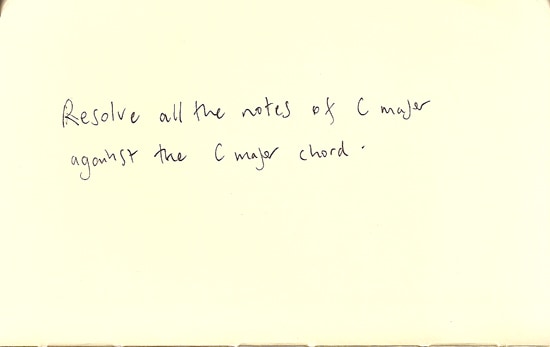 Resolve all the notes of C major
against the C major chord.